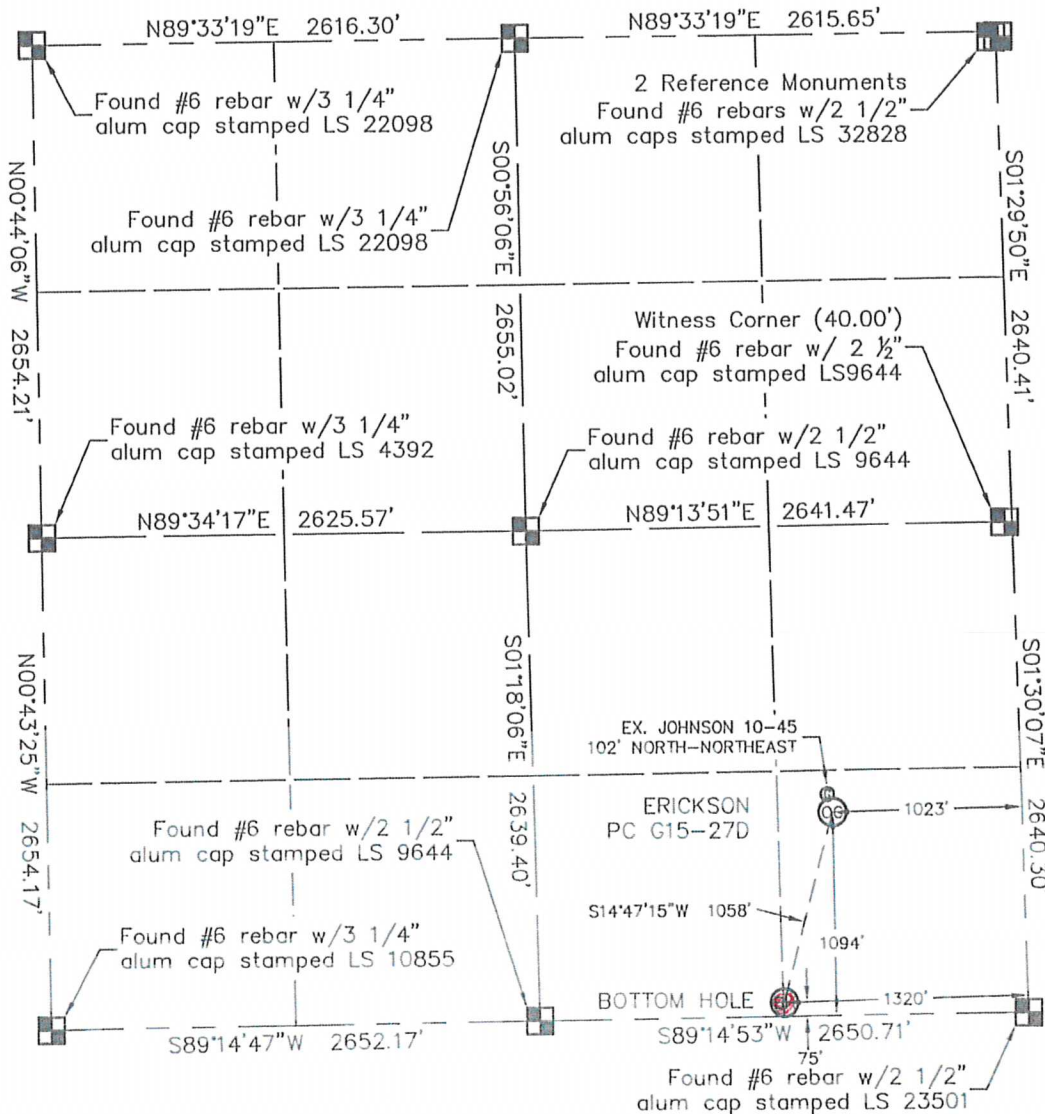 N89°33'19"E 2616.30'
N89°33'19"E 2615.65'
Found #6 rebar w/3 1/4"
alum cap stamped LS 22098
2 Reference Monuments
Found #6 rebars w/2 1/2"
alum caps stamped LS 32828
Found #6 rebar w/3 1/4"
alum cap stamped LS 22098
N00°44'06"W 2654.21'
S00°56'06"E 2655.02'
S01°29'50"E 2640.41'
Witness Corner (40.00')
Found #6 rebar w/ 2 ½"
alum cap stamped LS9644
Found #6 rebar w/3 1/4"
alum cap stamped LS 4392
Found #6 rebar w/2 1/2"
alum cap stamped LS 9644
N89°34'17"E 2625.57'
N89°13'51"E 2641.47'
N00°43'25"W 2654.17'
S01°18'06"E 2639.40'
S01°30'07"E 2640.30
EX. JOHNSON 10-45
102' NORTH-NORTHEAST
ERICKSON
PC G15-27D
1023'
Found #6 rebar w/2 1/2"
alum cap stamped LS 9644
S14°47'15"W 1058'
1094'
Found #6 rebar w/3 1/4"
alum cap stamped LS 10855
BOTTOM HOLE
1320'
S89°14'47"W 2652.17'
S89°14'53"W 2650.71'
75'
Found #6 rebar w/2 1/2"
alum cap stamped LS 23501